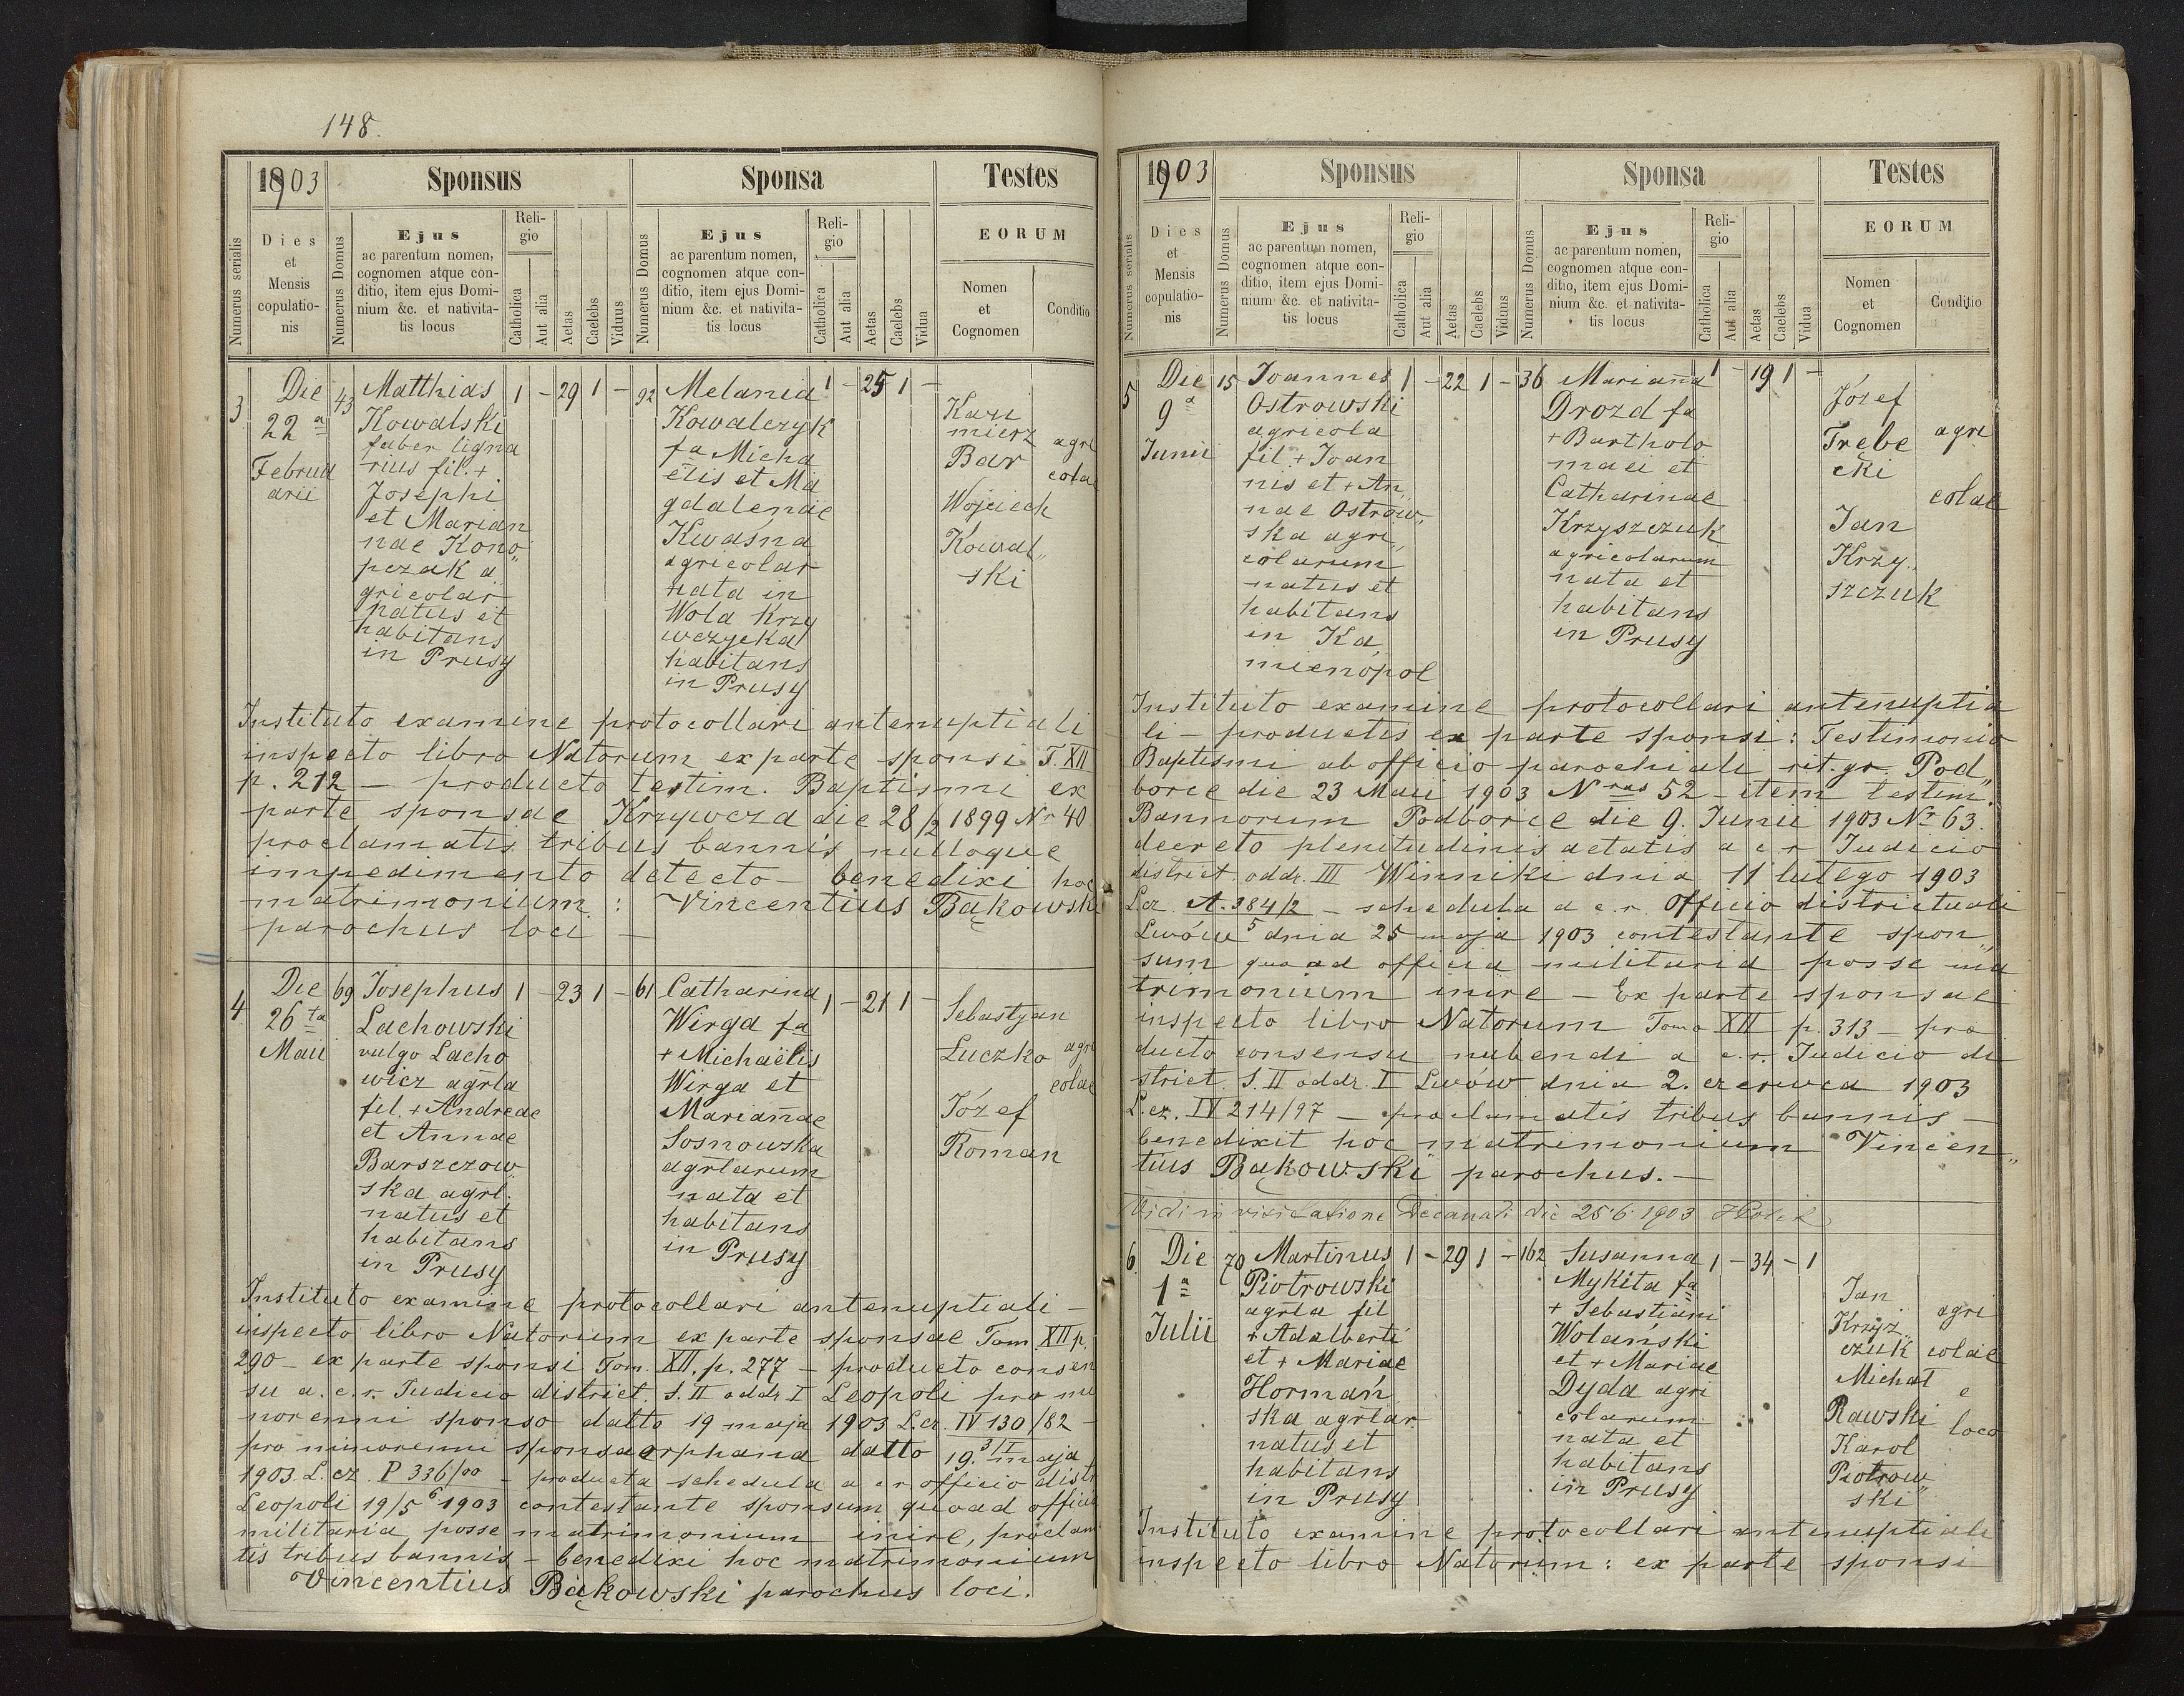 148.
1903
Sponsus
Sponsa
Testes
Numerus serialis
Dies
et
Mensis
copulatio-
nis
Numerus Domus
Ejus
ac parentum nomen,
cognomen atque con-
ditio, item ejus Domi-
nium &c. et nativita-
tis locus
Reli-
gio
Catholica
Aut alia
Aetas
Caelebs
Viduus
Numerus Domus
Ejus
ac parentum nomen,
cognomen atque con-
ditio, item ejus Domi-
nium &c. et nativita-
tis locus
Reli-
gio
Catholica
Aut alia
Aetas
Caelebs
Vidua
EORUM
Nomen
et
Cognomen
Conditio
3
Die
22a
Februa
arii
43
Matthias
Kowalski
faber ligna
rius fil. +
Josephi
et Marian
nae Kono„
pczak a„
gricolar
natus et
habitans
in Prusy
1 - 29 1 -
92
Melania
Kowalczyk
fa Micha
elis et Ma
gdalenae
Kwaśna
agricolar
nata in
Wola Krzy
wczycka
habitans
in Prusy
1 - 25 1 -
Kazi
mierz
Bar
Wojciech
Kowal„
ski
agri
colae
Instituto examine protocollari antenuptiali
inspecto libro Natorum ex parte sponsi T. XII
p. 212 — producto testim. Baptismi ex
parte sponsae Krzywcza die 28/2 1899 Nr 40
proclamatis tribus bannis nulloque
impedimento detecto — benedixi hoc
matrimonium : Vincentius Bąkowski
parochus loci —
4
Die
26ta
Maii
69
Josephus
Lachowski
vulgo Lacho
wicz agrla
fil. + Andreae
et Annae
Barszczow„
ska agrl.
natus et
habitans
in Prusy
1 - 23 1 -
61
Catharina
Wirga fa
+ Michaëlis
Wirga et
Marianae
Sosnowska
agrlarum
nata et
habitans
in Prusy
1 - 21 1 -
Sebastyan
Łuczko
Józef
Roman
agri
colae
Instituto examine protocollari antenuptiali —
inspecto libro Natorum ex parte sponsae Tom. XII p.
290 — ex parte sponsi Tom. XII. p. 277 — producto consen
su a. c. r. Judicio district. S. II oddz. I Leopoli pro mi
norenni sponso datto 19 maja 1903 L.cz. IV 130/82 —
pro minorenni sponsa orphana datto 19. maja
1903 L. cz. P 336/00 — producta schedula a c r officio distr
Leopoli 19/5 1903 contestante sponsum quoad officia
militaria posse matrimonium inire, proclam
tis tribus bannis — benedixi hoc matrimonium
Vincentius Bąkowski parochus loci.
1903
Sponsus
Sponsa
Testes
Numerus serialis
Dies
et
Mensis
copulatio-
nis
Numerus Domus
Ejus
ac parentum nomen,
cognomen atque con-
ditio, item ejus Domi-
nium &c. et nativita-
tis locus
Reli-
gio
Catholica
Aut alia
Aetas
Caelebs
Viduus
Numerus Domus
Ejus
ac parentum nomen,
cognomen atque con-
ditio, item ejus Domi-
nium &c. et nativita-
tis locus
Reli-
gio
Catholica
Aut alia
Aetas
Caelebs
Vidua
EORUM
Nomen
et
Cognomen
Conditio
5
Die
9a
Junii
15
Joannes
Ostrowski
agricola
fil + Joan
nis et + An„
nae Ostrow„
ska agri„
colarum
natus et
habitans
in Ka„
mienopol
1 - 22 1 -
36
Marianna
Drozd fa
+ Bartholo
maei et
Catharinae
Krzyszczuk
agricolarum
nata et
habitans
in Prusy
1 - 19 1 -
Józef
Trębe
cki
Jan
Krzy„
szczuk
agri
colae
Instituto examine protocollari antenuptia
li — productis ex parte sponsi : Testimonio
Baptismi ab officio parochiali rit. gr. Pod„
borce die 23 Maii 1903 Nras 52 — item testim.
Bannorum Podborce die 9. Junii 1903 Nr 63.
decreto plenitudinis aetatis a c r Judicio
district. oddz. III Winniki dnia 11 lutego 1903
L.cz A.384/2 — schedula a c. r. Officio districtuali
Lwów dnia 25 maja 1903 contestante spon„
sum quoad officia militaria posse ma
trimonium inire — Ex parte sponsae
inspecto libro Natorum Tomo XII p. 313 — pro
ducto consensu nubendi a c. r. Judicio di
strict. S. II oddz. I Lwów dnia 2. czerwca 1903
L. cz. IV 214/97 — proclamatis tribus bannis —
benedixit hoc matrimonium Vincen„
tius Bąkowski parochus. —
Vidi in visitatione Decanali die 25.6.1903
6.
Die
1a
Julii
70
Martinus
Piotrowski
agrla fil
+ Adalberti
et + Mariae
Hormań
ska agrlar
natus et
habitans
in Prusy
1 - 29 1 -
162
Susanna
Mykita fa
+ Sebastiani
Wolanski
et + Mariae
Dyda agri
colarum
nata et
habitans
in Prusy
1 - 34 - 1
Jan
Krzyż„
czuk
Michał
Rawski
Karol
Piotrow„
ski
agri
colae
e
loco
Instituto examine protocollari antenuptiali
inspecto libro Natorum : ex parte sponsi